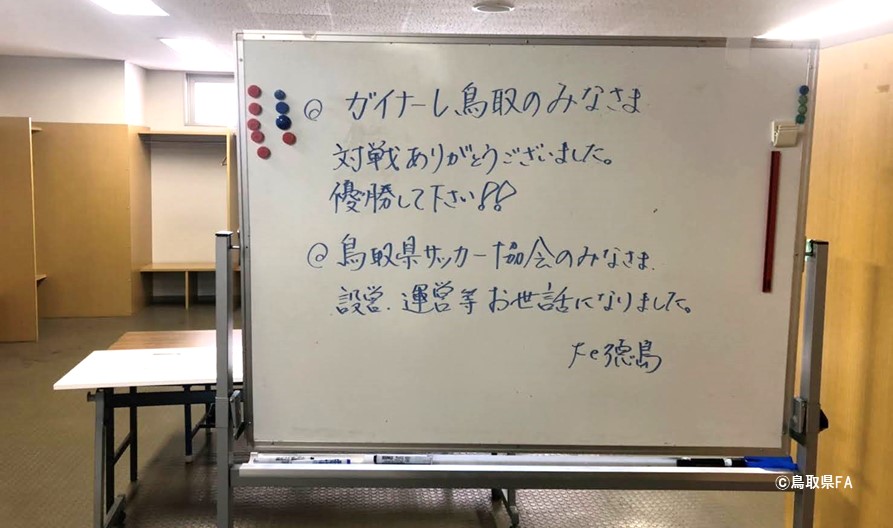 ◎ ガイナーレ鳥取のみなさま
対戦ありがとうございました。
優勝して下さい!!
◎ 鳥取県サッカー協会のみなさま
設営.運営等お世話になりました。
Fc徳島
©鳥取県FA